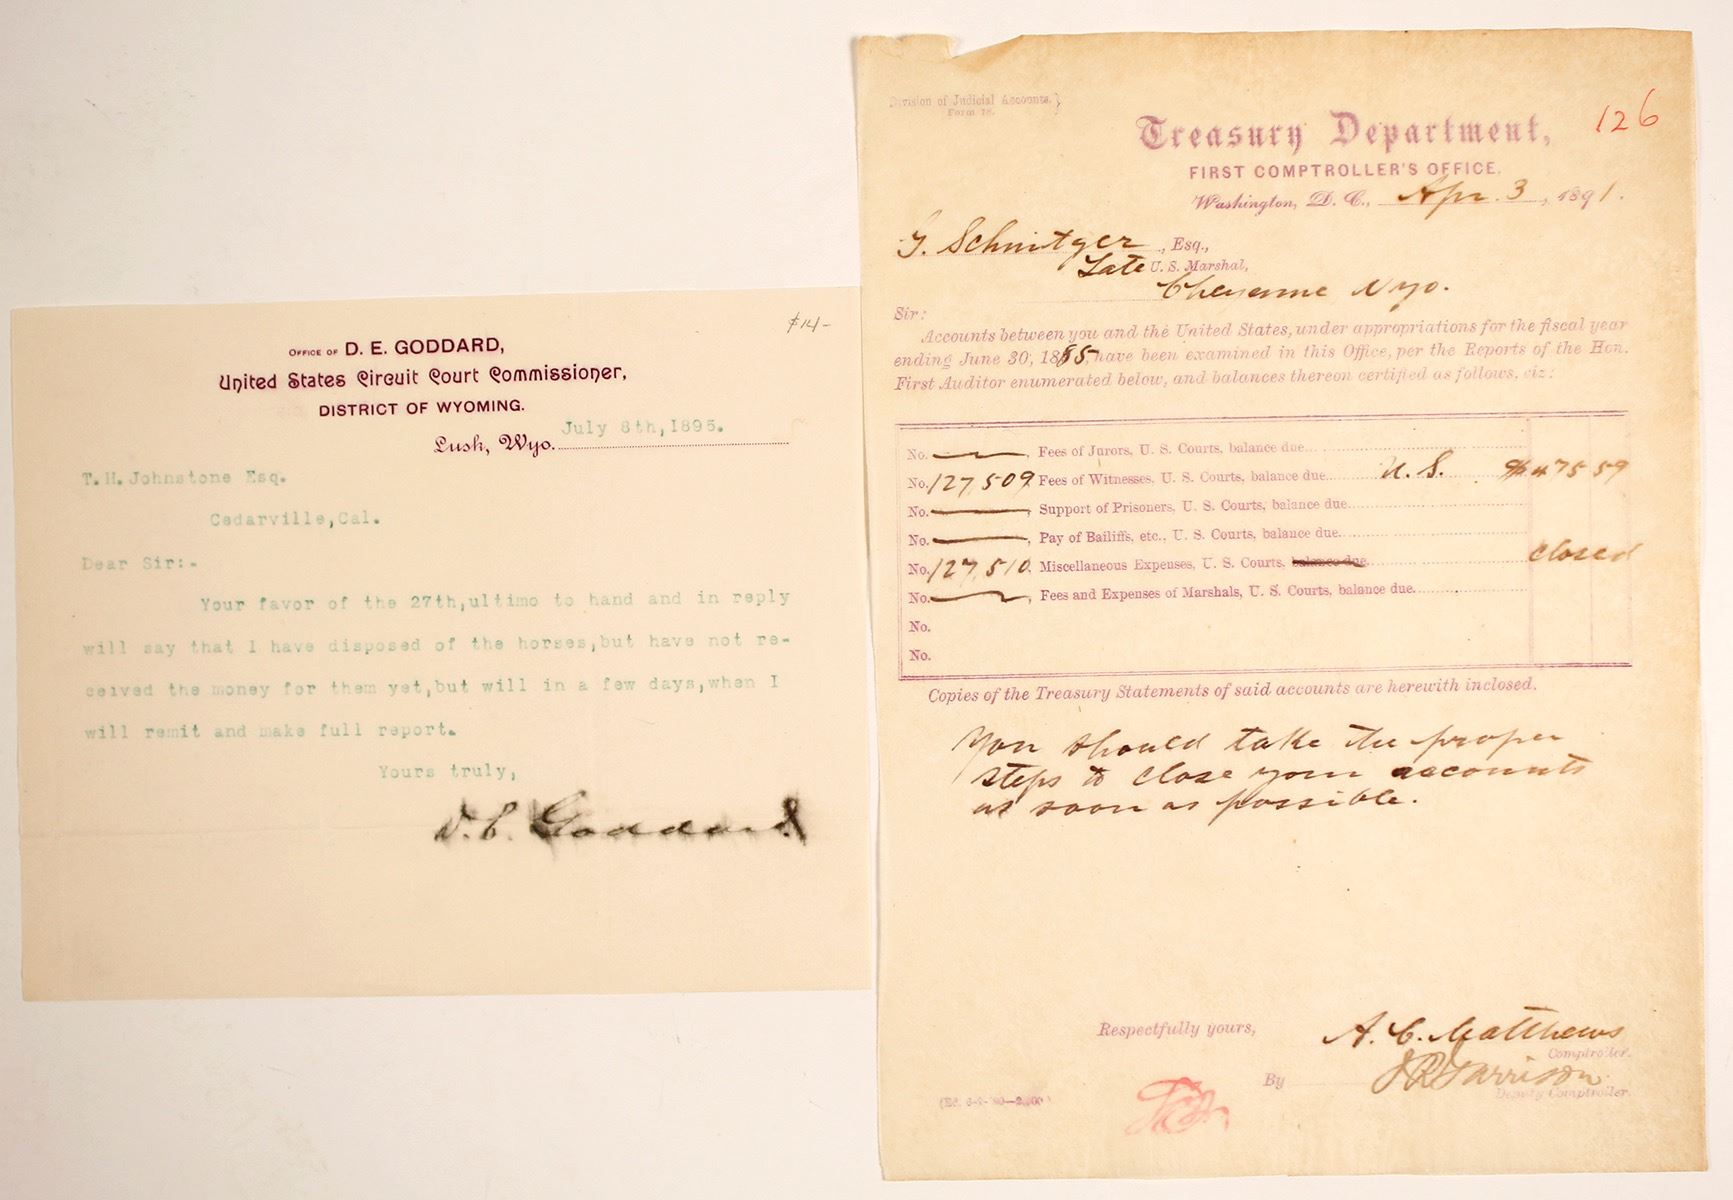 $14-
OFFICE OF D. E. GODDARD,
United States Circuit Court Commissioner,
DISTRICT OF WYOMING.
Lusk, Wyo. July 8th,1895.
T.H.Johnstone Esq.
Cedarville,Cal.
Dear Sir:-
Your favor of the 27th,ultimo to hand and in reply
will say that I have disposed of the horses,but have not re-
ceived the money for them yet,but will in a few days,when I
will remit and make full report.
Yours truly,
D. E. Goddard
Division of Judicial Accounts.}
Form 18.
126
Treasury Department,
FIRST COMPTROLLER'S OFFICE,
Washington, D. C., Apr. 3, 1891.
G. Schnitger, Esq.,
Late U. S. Marshal,
Cheyenne Wyo.
Sir:
Accounts between you and the United States, under appropriations for the fiscal year
ending June 30, 1885, have been examined in this Office, per the Reports of the Hon.
First Auditor enumerated below, and balances thereon certified as follows, viz:
No. , Fees of Jurors, U. S. Courts, balance due
No. 127,509, Fees of Witnesses, U. S. Courts, balance due U. S. $475 59
No. , Support of Prisoners, U. S. Courts, balance due
No. , Pay of Bailiffs, etc., U. S. Courts, balance due
No. 127,510, Miscellaneous Expenses, U. S. Courts, balance due closed
No. , Fees and Expenses of Marshals, U. S. Courts, balance due
No.
No.
Copies of the Treasury Statements of said accounts are herewith inclosed.
You should take the proper
steps to close your accounts
as soon as possible.
Respectfully yours, A. C. Matthews
Comptroller.
By J R Garrison
Deputy Comptroller.